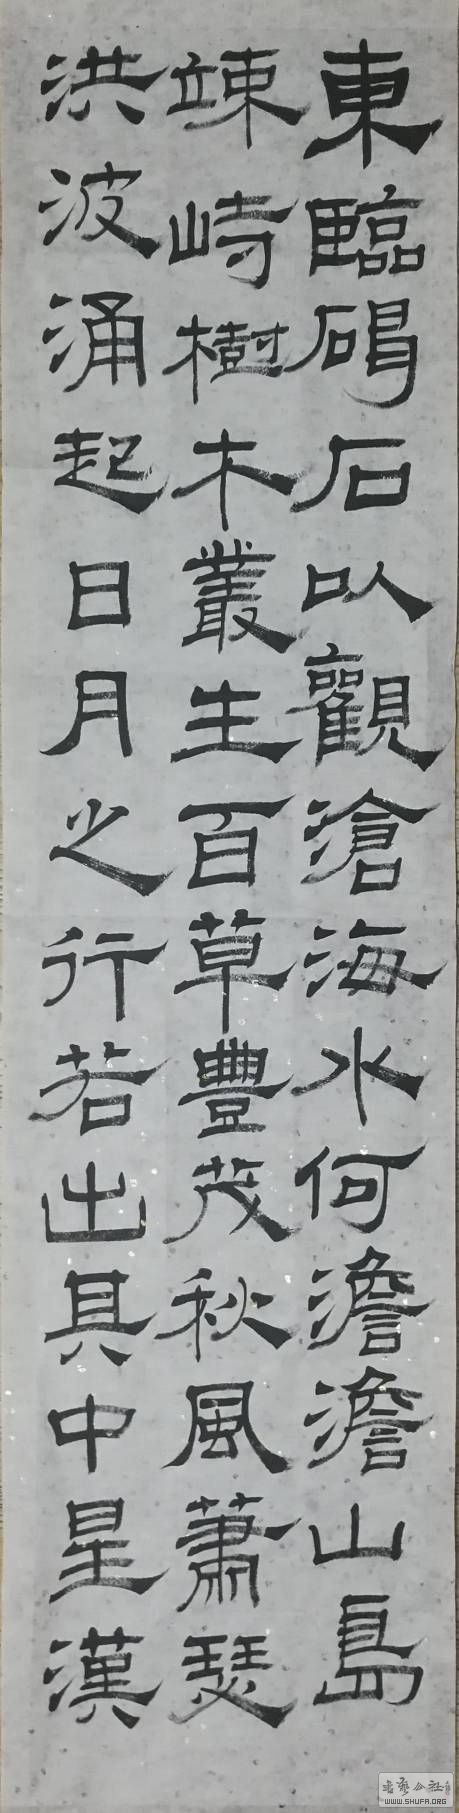 東臨碣石以觀滄海水何澹澹山島
竦峙樹木叢生百草豐茂秋風蕭瑟
洪波涌起日月之行若出其中星漢
書法公社
WWW.SHUFA.ORG